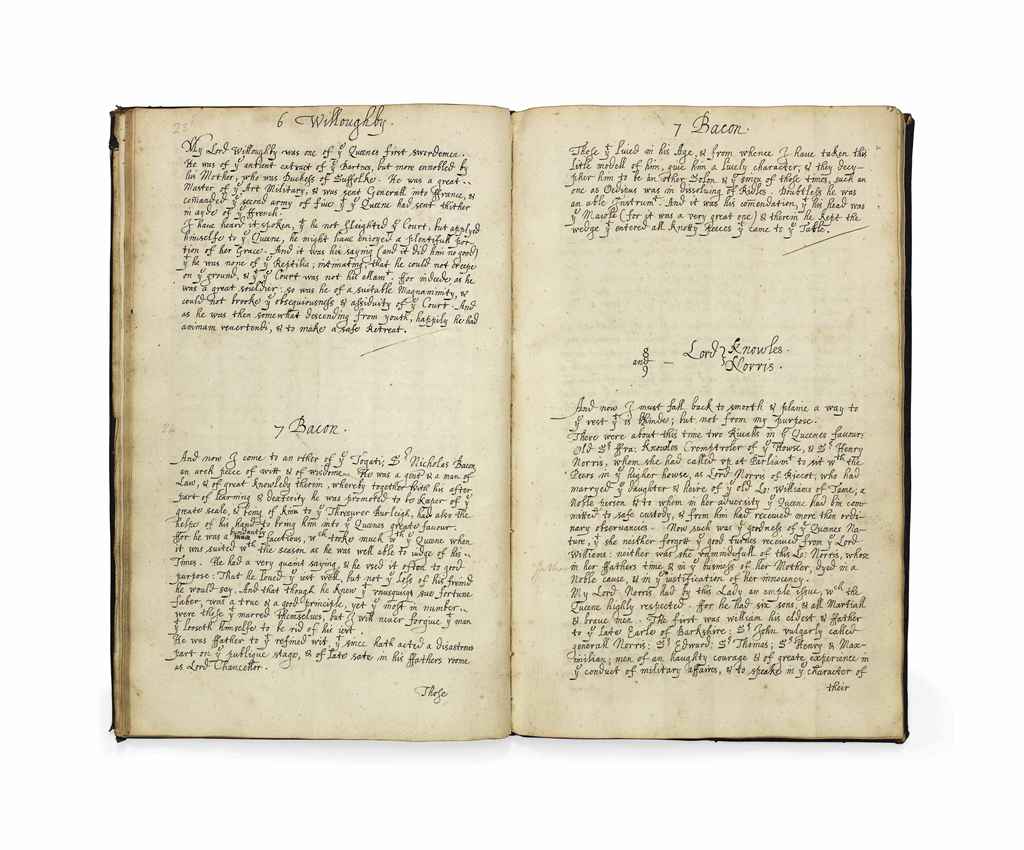 23
6 Willoughby.
My Lord Willoughby was one of yᵉ Queenes first swordemen.
He was of yᵉ antient extract of yᵉ Bartœs, but more ennobled by
his Mother, who was Dutchess of Suffolke. He was a great
Master of yᵉ Art Military, & was sent Generall into ffrance, &
com̃anded yᵉ second army of five yᵗ yᵉ Queene had sent thither
in ayde of yᵉ ffrench.
I have heard it spoken, yᵗ he not sleighted yᵉ Court, but applyed
himselfe to yᵉ Queene, he might have enioyed a plentifull por
tion of her Grace. And it was his saying (and it did him no good)
yᵗ he was none of yᵉ Reptilia, intimating, that he could not creepe
on yᵉ ground, & yᵗ yᵉ Court was not his ellamᵗ. ffor indeede, as he
was a great souldier: so was he of a suitable Magnanimity, &
could not brooke yᵉ obsequiousness & assiduity of yᵉ Court. And
as he was then somewhat descending from youth, happily he had
animam revertendi, & to make a safe Retreat.
24
7 Bacon.
And now I come to an other of yᵉ Togati; Sʳ Nicholas Bacon
an arch piece of witt & of wisdome. He was a gent & a man of
Law, & of great Knowledg therein, whereby together with his after
part of learning & dexterity he was promoted to be Keper of yᵉ
greate seale, & being of Kinn to yᵉ Thresurer Burleigh, had also the
helpe of his hand to bring him into yᵉ Queenes greate favour.
ffor he was a factious, wᶜʰ tooke much wᵗʰ yᵉ Queene when
it was suited wᵗʰ the season as he was well able to iudge of his
Times. He had a very quaint saying, & he used it often to good
purpose: That he loved yᵉ iest well, but not yᵉ loss of his friend
he would say, And that though he knew yᵗ unusquisq suæ fortunæ
faber, was a true & a good principle, yet yᵉ most in number
were those yᵗ marred themselves, but I will never forgive yᵗ man
yᵗ looseth himselfe to be rid of his iest.
He was ffather to yᵗ refined wit, yᵗ since hath acted a disastrous
part on yᵉ publique stage, & of late sate in his ffathers roome
as Lord Chancellor.
Those
7 Bacon.
Those yᵗ lived in his Age, & from whence I have taken this
litle modell of him, give him a lively character, & they decy-
pher him to be an other Solon & yᵉ Sinon of those times, such an
one as Oedipus was in dissolving of Ridles. Doubtless he was
an able Instrumᵗ. And it was his comendation, yᵗ his head was
yᵉ Maule (for it was a very great one) & therein he kept the
wedge yᵗ entered all Knotty Peeces yᵗ came to yᵉ Table.
8 and 9 — Lord Knowles. Norris.
And now I must fall back to smooth & plaine a way to
yᵉ rest yᵗ is behinde; but not from my purpose.
There were about this time two Rivalls in yᵉ Queenes favour.
Old Sʳ ffra: Knowles Comptroler of yᵉ House, & Sʳ Henry
Norris, whom she had called up at Parliamᵗ to sit wᵗʰ the
Peers in yᵉ higher house, as Lord Norris of Ricot, who had
marryed yᵉ daughter & heire of yᵉ old Lo: Williams of Tame, a
Noble person & to whom in her adversity yᵉ Queene had bin com
mitted to safe custody, & from him had received more then ordi-
nary observances. Now such was yᵉ goodness of yᵉ Queenes Na-
ture, yᵗ she neither forgott yᵉ good turnes received from yᵉ Lord
Williams: neither was she unmindfull of this Lo: Norris, whose
in her ffathers time, & in yᵉ business of her Mother, dyed in a
Noble cause, & in yᵉ iustification of her innocency.
My Lord Norris had by this Lady an ample issue, wᶜʰ the
Queene highly respected. ffor he had six sons, & all Martiall
& brave men. The first was William his eldest & ffather
to yᵉ late Earle of Barkshire; Sʳ John vulgarly called
generall Norris: Sʳ Edward; Sʳ Thomas; Sʳ Henry & Max-
imilian; men of an haughty courage & of greate experience in
yᵉ conduct of military affaires, & to speake in yᵉ character of
their